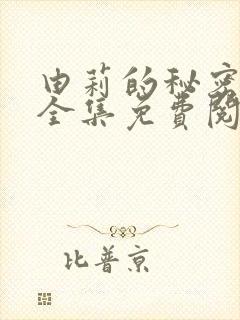 由莉的秘密
全集免费阅
比普京